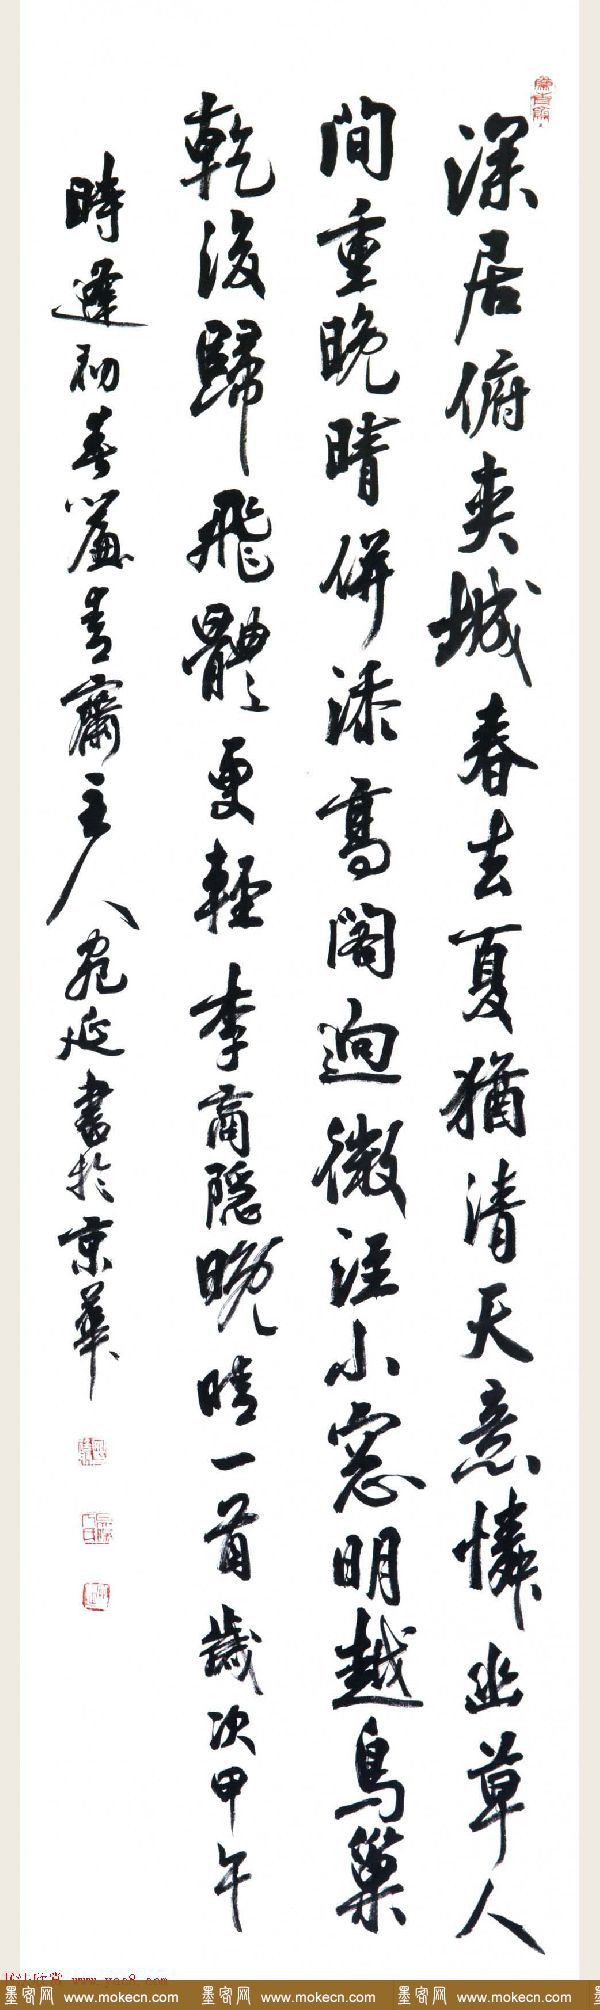 深居俯夾城春去夏猶清天意憐幽草人
間重晚晴併添高閣迥微注小窓明越鳥巢
乾後歸飛體更輕李商隐晚晴一首歲次甲午
時逢初春青齋主人延書於京華
墨客网 www.mokecn.com 墨客网 www.mokecn.com 墨客网 www.mokecn.com